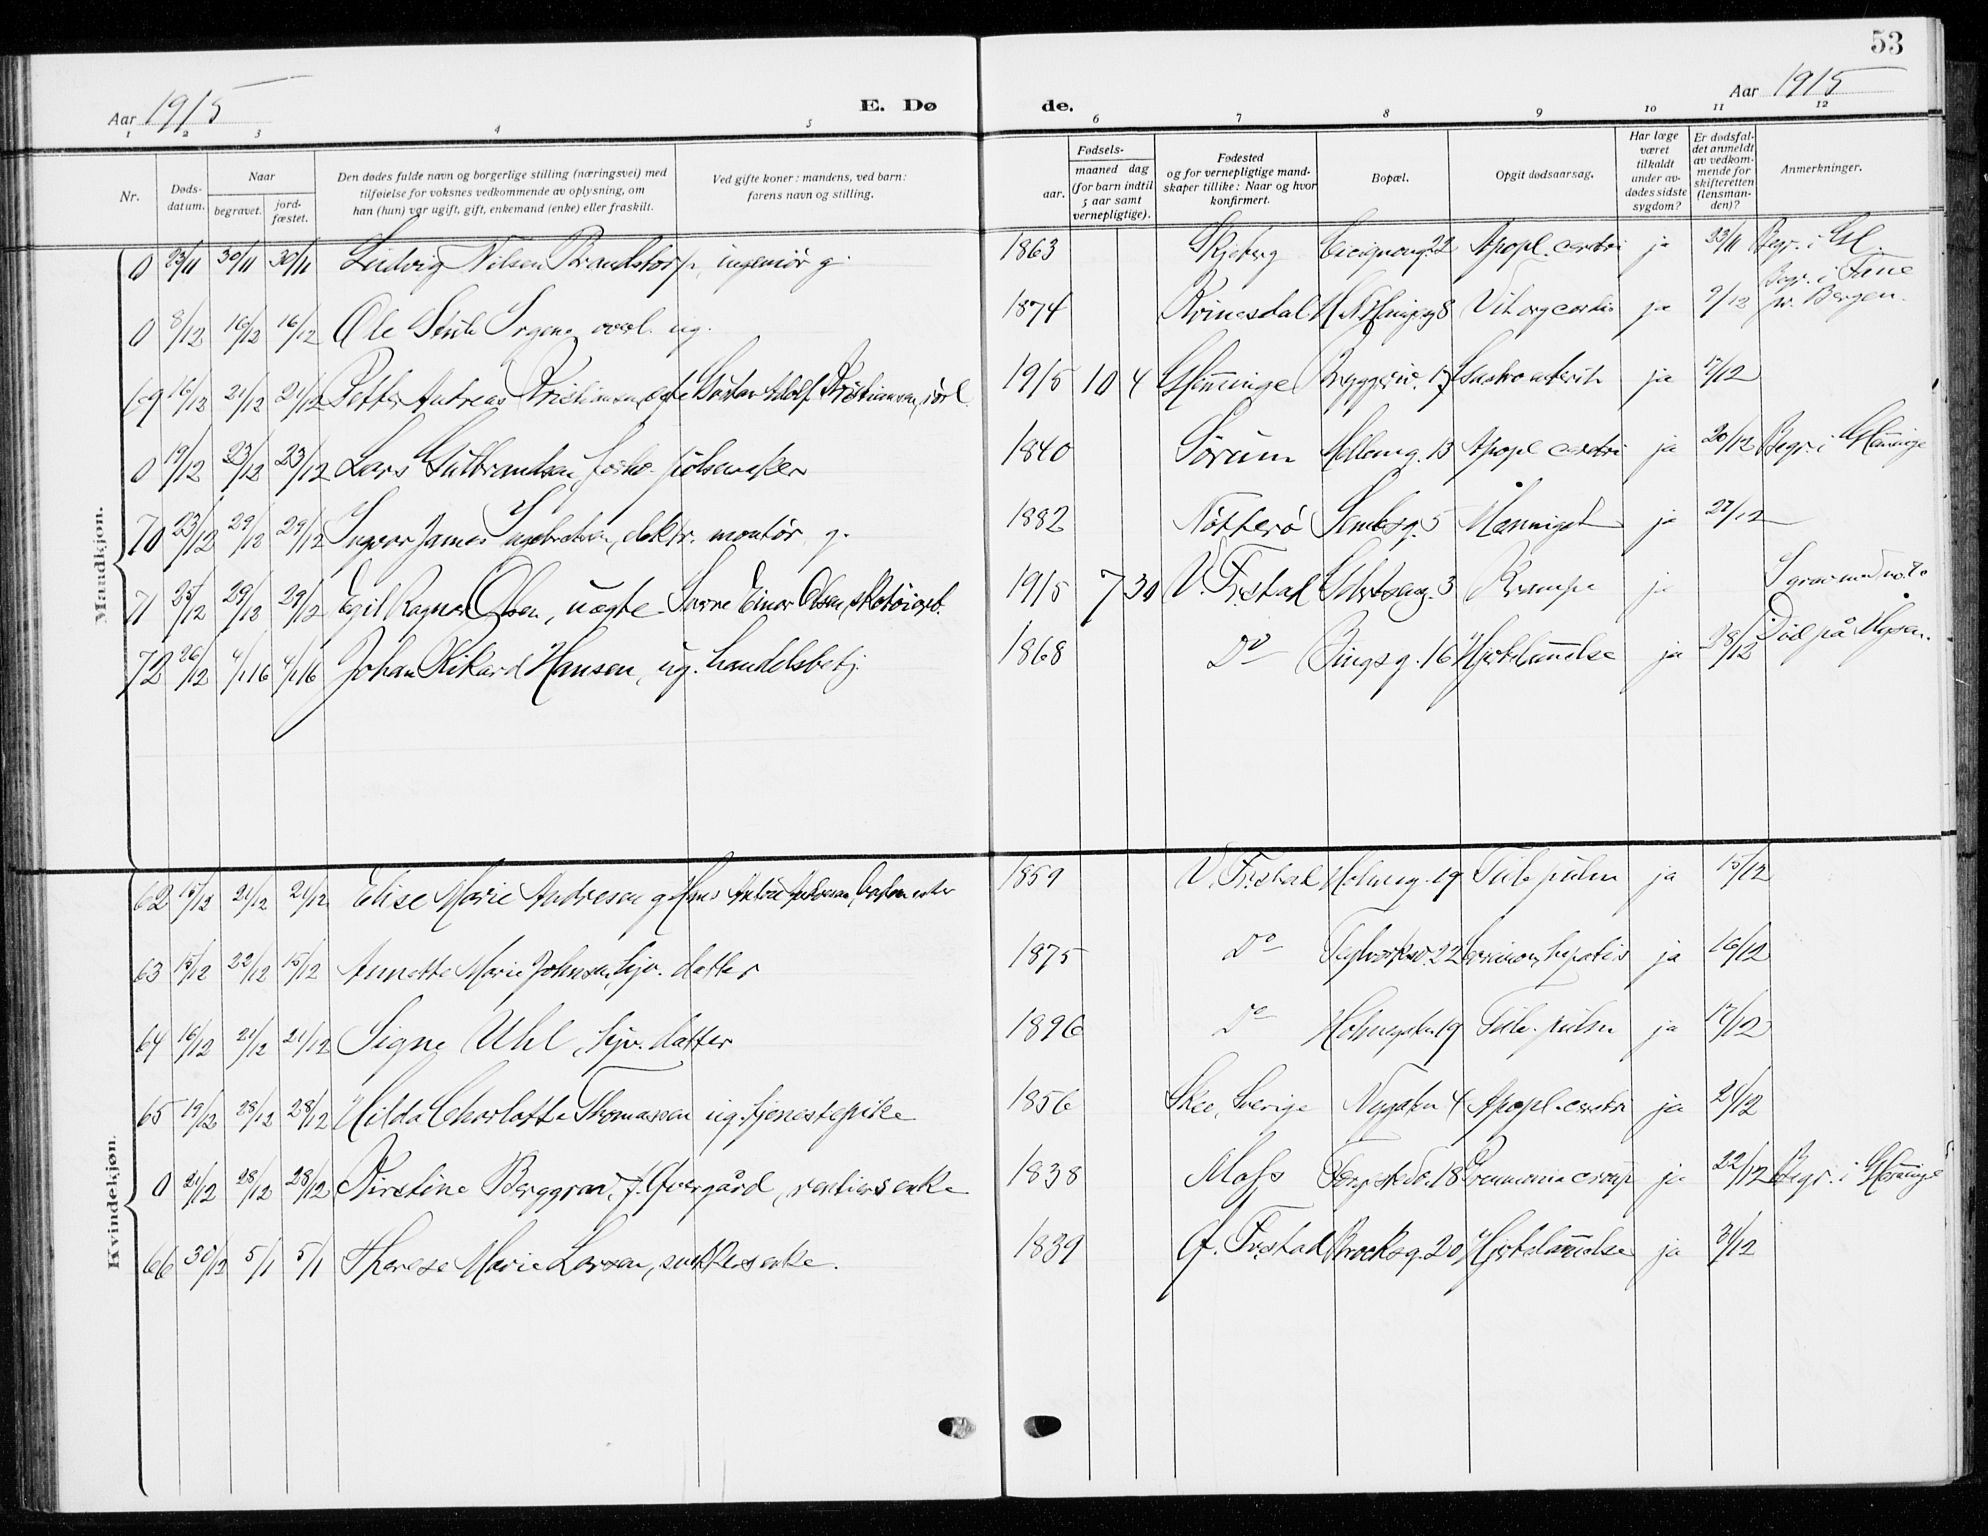 53
Aar 1915 E. Dø de. Aar 1915
1 2 3 4 5 6 7 8 9 10 11 12
Nr. Døds-datum. Naar begravet. jord-fæstet. Den dødes fulde navn og borgerlige stilling (næringsvei) med tilføielse for voksnes vedkommende av oplysning, om han (hun) var ugift, gift, enkemand (enke) eller fraskilt. Ved gifte koner: mandens, ved barn: farens navn og stilling. Fødsels- aar. maaned dag (for barn indtil 5 aar samt vernepligtige). Fødested og for vernepligtige mand-skaper tillike: Naar og hvor konfirmert. Bopæl. Opgit dødsaarsag. Har læge været tilkaldt under av-dødes sidste sygdom? Er dødsfal-det anmeldt av vedkom-mende for skifteretten (lensman-den)? Anmerkninger.
Mandkjøn.
0 23/11 30/11 30/11 Ludvig Nilsen Brandstorp, ingeniør g. 1863 Skjeberg Cicignong. 22 Apopl. cerebri ja 23/11 Begr. i Gl.
0 8/12 16/12 16/12 Ole ug. 1874 Kvinesdal Vit. org. cordis ja 9/12 Begr. i Fane pr. Bergen.
69 16/12 21/12 21/12 Petter Andreas Kristiansen, egte Gustav Adolf Kristiansen, 1915 10 4 Glemminge Bryggeriv. 17 Gastro enterit ja 17/12
0 19/12 23/12 23/12 Lars Gulbrandsen, 1840 Sørum Mellemg. 13 Apopl. cerebri ja 20/12 Begr. i Glemminge
70 23/12 29/12 29/12 Ingvar James Ingebretsen, elektr. montør g. 1882 Nøtterø 5 Meningit ja 27/12
71 25/12 29/12 29/12 Egil Ragnar Olsen, uegte Einar Olsen, skotøiarb. 1915 7 30 V. Fr.stad 3 Krampe ja I grav med
72 26/12 4/1 16 4/1 16 Johan Rikard Hansen, ug. handelsbetj. 1868 Do 16 Hjertelammelse ja 28/12 Død på Mysen.
Kvindekjøn.
62 15/12 21/12 21/12 Elise Marie Andresen g. Hans Anton Andresen, 1859 V. Fr.stad Holmeg. 19 Tub. pulm ja 15/12
63 15/12 22/12 15/12 Annette Marie Johnsen, hjv. datter 1875 Do Teglverksv. 22 hepatis ja 16/12
64 16/12 21/12 21/12 Signe Uhl, hjv. datter 1896 Do Holmegaten 19 Tub. pulm ja 17/12
65 19/12 28/12 28/12 Hilda Charlotte Thomassen ug. tjenestepike 1856 Skee, Sverige Nygaten 4 Apopl. cerebri ja 21/12
0 21/12 28/12 28/12 Kirstine Berggrav, f. Overgård, rentiers enke 1838 Moss 18 Pneumonia croup ja 22/12 Begr. i Glemminge
66 30/12 5/1 5/1 Therese Marie Larsen, snekkers enke. 1839 G. Fr.stad Brocksg. 20 Hjertelammelse ja 31/12